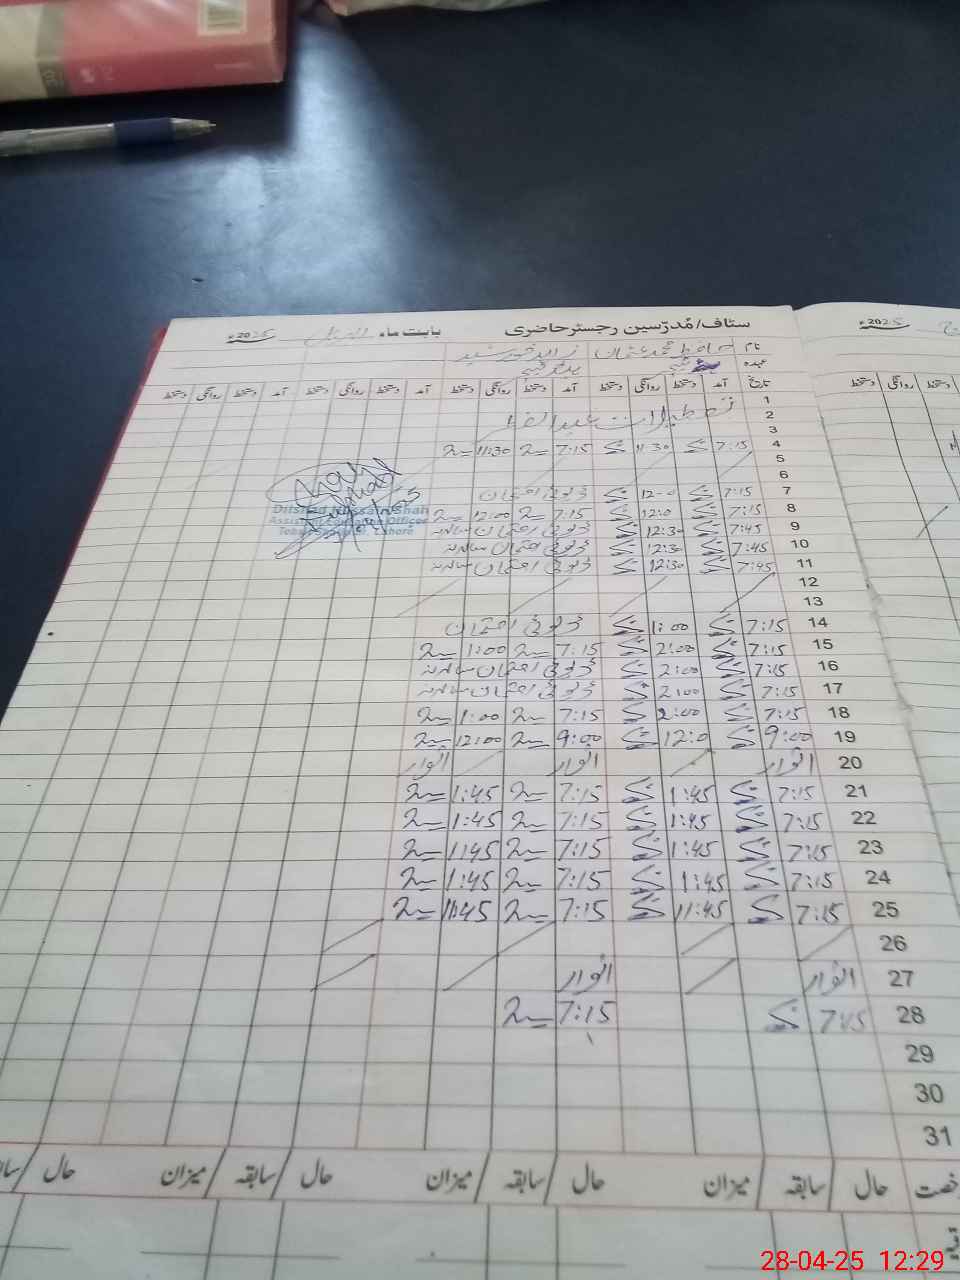 سٹاف/مُدرّسین رجسٹر حاضری بابت ماہ اپریل 2025ء
2025ء
نام حافظ محمد عثمان زاہد خورشید
عہدہ
تاریخ آمد دستخط روانگی دستخط آمد دستخط روانگی دستخط آمد دستخط روانگی دستخط آمد دستخط روانگی دستخط
روانگی دستخط
1
2 تعطیلات عید الفطر
3
4 7:15 11:30 7:15 11:30
5
6
7 7:15 12:0 ڈیوٹی امتحان
8 7:15 12:0 7:15 12:00
9 7:45 12:30 ڈیوٹی امتحان سالانہ
10 7:45 12:30 ڈیوٹی امتحان سالانہ
11 7:45 12:30 ڈیوٹی امتحان سالانہ
12
13
14 7:15 1:00 ڈیوٹی امتحان
15 7:15 2:00 7:15 1:00
16 7:15 2:00 ڈیوٹی امتحان سالانہ
17 7:15 2:00 ڈیوٹی امتحان سالانہ
18 7:15 2:00 7:15 1:00
19 9:00 12:0 9:00 12:00
20 اتوار اتوار اتوار
21 7:15 1:45 7:15 1:45
22 7:15 1:45 7:15 1:45
23 7:15 1:45 7:15 1:45
24 7:15 1:45 7:15 1:45
25 7:15 11:45 7:15 11:45
26
27 اتوار اتوار
28 7:15 7:15
29
30
31
Dilshad Hussain Shah
Assistant Education Officer
Lahore
رخصت حال سابقہ میزان حال سابقہ میزان حال سابقہ میزان حال
28-04-25 12:29